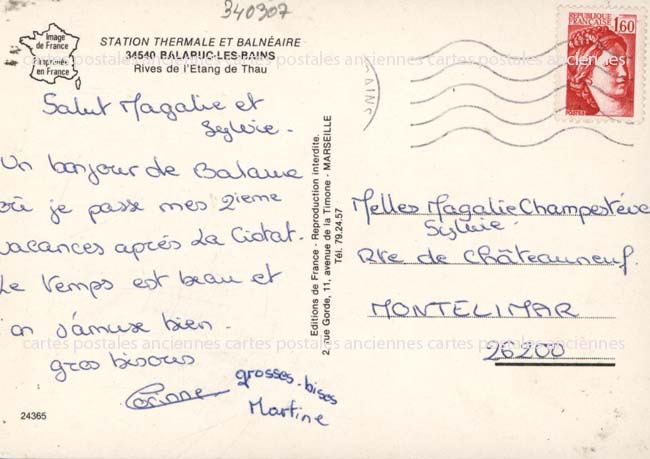 340307
Image
de France
Imprimée
en France
STATION THERMALE ET BALNÉAIRE
34540 BALARUC-LES-BAINS
Rives de l'Etang de Thau
Salut Magalie et
Sylvie.
Un bonjour de Balaruc
où je passe mes 2ieme
vacances aprés La Ciotat.
Le temps est beau et
on s'amuse bien.
gros bisous
Corinne
grosses-bises
Martine
24365
Editions de France - Reproduction interdite.
2, rue Gorde, 11, avenue de la Timone - MARSEILLE
Tél. 79.24.57
BAINS
REPUBLIQUE FRANÇAISE
1,60
POSTES
Melles Magalie Champestève
Sylvie.
Rte de Châteauneuf.
MONTELIMAR
26200
cartes postales anciennes cartes postales anciennes cartes postales anciennes
cartes postales anciennes cartes postales anciennes cartes postales anciennes